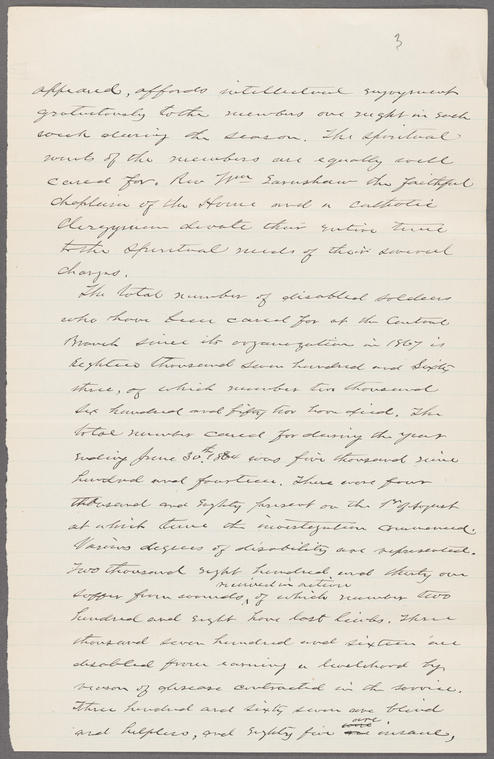 3
appeared, affords intellectual enjoyment
gratuitously to the members one night in each
week during the season. The Spiritual
wants of the members are equally well
cared for. Rev Wm Earnshaw the faithful
Chaplain of the Home and a Catholic
Clergyman devote their entire time
to the Spiritual needs of their several
charges.
The total number of disabled soldiers
who have been cared for at the Central
Branch since its organization in 1867 is
Eighteen thousand seven hundred and Sixty
three, of which number two thousand
six hundred and fifty two have died. The
total number cared for during the year
ending June 30th 1884 was five thousand nine
hundred and fourteen. There were four
thousand and Eighty present on the 1st of August
at which time the investigation commenced.
Various degrees of disability are represented.
Two thousand Eight hundred and thirty one
received in action
suffer from wounds, of which number two
hundred and Eight have lost limbs. Three
thousand seven hundred and sixteen are
disabled from earning a livelihood by
reason of disease contracted in the service.
Three hundred and sixty seven are blind
are
and helpless, and Eighty five insane,